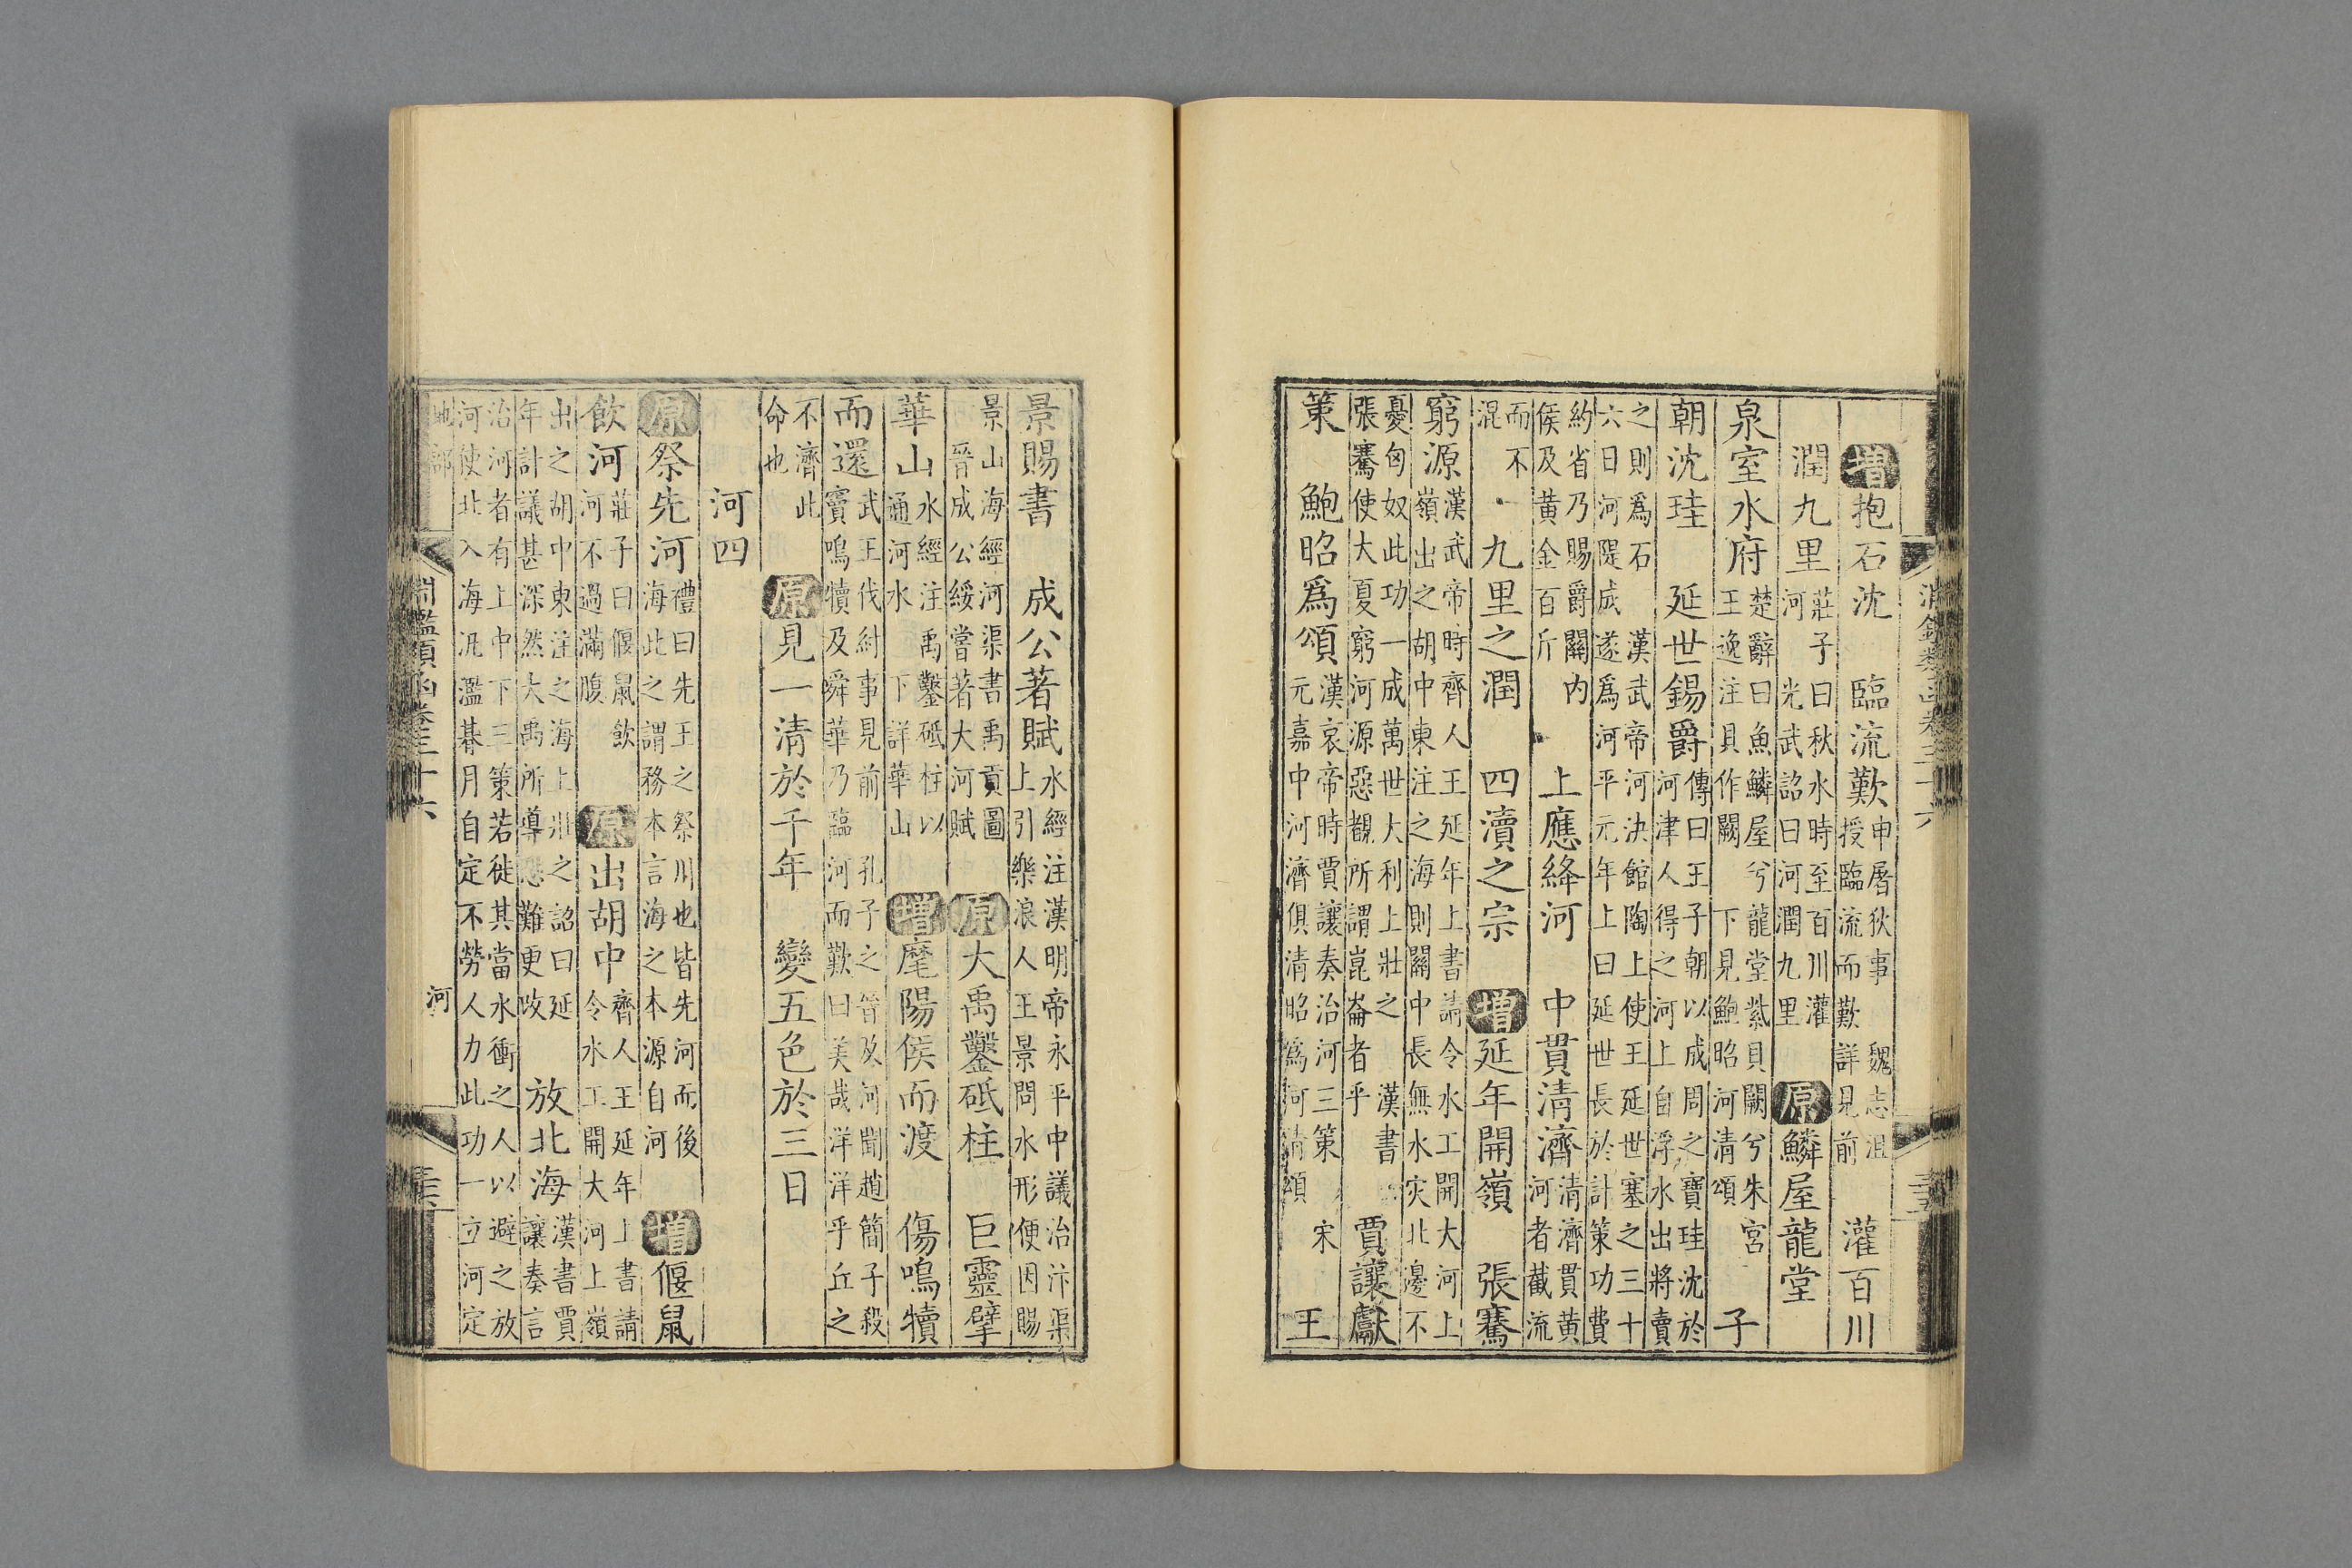 淵鑑類函卷三十六 三十五
增抱石沈　臨流歎申屠狄事　魏志沮授臨流而歎詳見前　灌百川
潤九里莊子曰秋水時至百川灌河　光武詔曰河潤九里　原鱗屋龍堂
泉室水府楚辭曰魚鱗屋兮龍堂紫貝闕兮朱宮王逸注貝作闕　下見鮑昭河清頌　子
朝沈珪　延世錫爵傳曰王子朝以成周之寶珪沈於河津人得之河上自浮水出將賣
之則爲石　漢武帝河決館陶上使王延世塞之三十六日河隄成遂爲河平元年上曰延世長於計策功費
約省乃賜爵關內侯及黃金百斤　上應絳河　中貫清濟清濟貫黃河者截流
而不混　九里之潤　四瀆之宗　增延年開嶺　張騫
窮源漢武帝時齊人王延年上書請令水工開大河上嶺出之胡中東注之海則關中長無水灾北邊不
憂匈奴此功一成萬世大利上壯之　漢書張騫使大夏窮河源惡覩所謂崑崙者乎　賈讓獻
策　鮑昭爲頌漢哀帝時賈讓奏治河三策　宋元嘉中河濟俱清昭爲河清頌　王
景賜書　成公著賦水經注漢明帝永平中議治汴渠上引樂浪人王景問水形便因賜
景山海經河渠書禹貢圖　晉成公綏嘗著大河賦　原大禹鑿砥柱　巨靈擘
華山水經注禹鑿砥柱以通河水　下詳華山　增麾陽侯而渡　傷鳴犢
而還武王伐紂事見前　孔子之晉及河聞趙簡子殺竇鳴犢及舜華乃臨河而歎曰美哉洋洋乎丘之
不濟此命也　原見一清於千年　變五色於三日
河四
原祭先河禮曰先王之祭川也皆先河而後海此之謂務本言海之本源自河　增偃鼠
飲河莊子曰偃鼠飲河不過滿腹　原出胡中齊人王延年上書請令水工開大河上嶺
出之胡中東注之海上壯之詔曰延年計議甚深然大禹所導恐難更改　放北海漢書賈讓奏言
治河者有上中下三策若徙其當水衝之人以避之放河使北入海汎濫朞月自定不勞人力此功一立河定
地部　淵鑑類函卷三十六　河　三十六